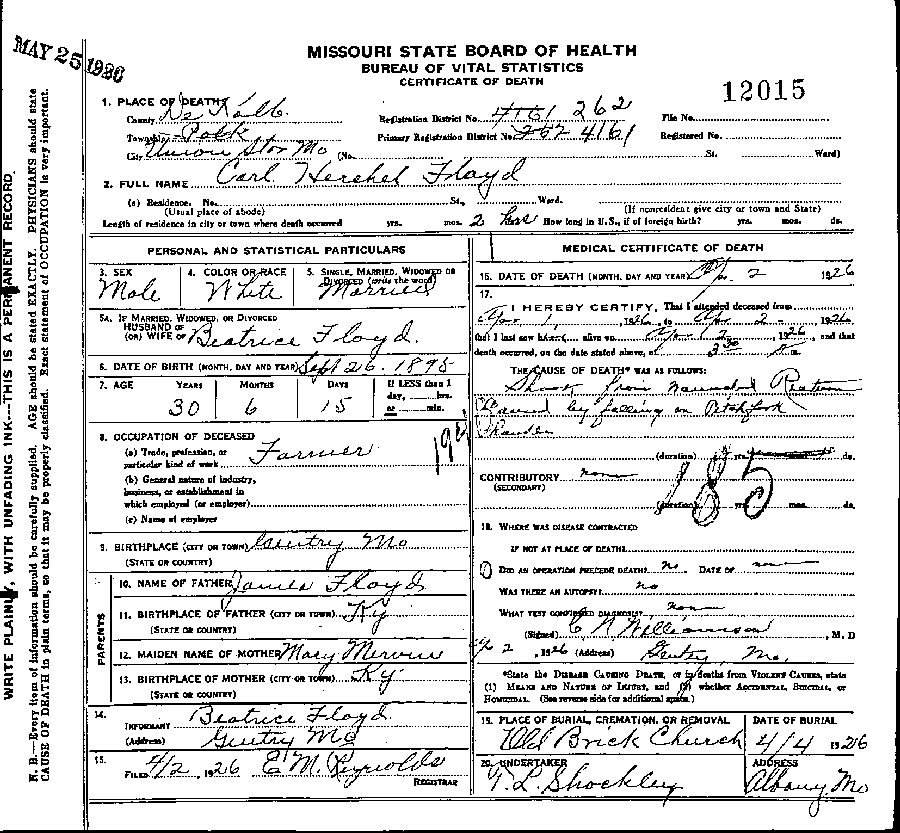 MAY 25 1926
MISSOURI STATE BOARD OF HEALTH
BUREAU OF VITAL STATISTICS
CERTIFICATE OF DEATH
12015
1. PLACE OF DEATH
County De Kalb
Township Polk
City Union Star Mo (No. St. Ward)
Registration District No. 4161 262
Primary Registration District No. 262 4161
File No.
Registered No.
2. FULL NAME Carl Hershel Floyd
(a) Residence. No. St., Ward.
(Usual place of abode) (If nonresident give city or town and State)
Length of residence in city or town where death occurred yrs. mos. 2 hrs How long in U.S., if of foreign birth? yrs. mos. ds.
PERSONAL AND STATISTICAL PARTICULARS
3. SEX Male
4. COLOR OR RACE White
5. SINGLE, MARRIED, WIDOWED OR DIVORCED (write the word) Married
5A. IF MARRIED, WIDOWED, OR DIVORCED
HUSBAND OF
(OR) WIFE OF Beatrice Floyd.
6. DATE OF BIRTH (MONTH, DAY AND YEAR) Sept 26. 1895
7. AGE YEARS MONTHS DAYS If LESS than 1 day, hrs. or min.
30 6 15
8. OCCUPATION OF DECEASED
(a) Trade, profession, or particular kind of work Farmer
(b) General nature of industry, business, or establishment in which employed (or employer)
(c) Name of employer
9. BIRTHPLACE (CITY OR TOWN) Gentry Mo
(STATE OR COUNTRY)
PARENTS
10. NAME OF FATHER James Floyd
11. BIRTHPLACE OF FATHER (CITY OR TOWN) Ky
(STATE OR COUNTRY)
12. MAIDEN NAME OF MOTHER Mary
13. BIRTHPLACE OF MOTHER (CITY OR TOWN) Ky
(STATE OR COUNTRY)
14. INFORMANT Beatrice Floyd
(Address) Gentry Mo
15. FILED 4/2, 1926 E M. Reynolds
REGISTRAR
MEDICAL CERTIFICATE OF DEATH
16. DATE OF DEATH (MONTH, DAY AND YEAR) Apr. 2 1926
17.
I HEREBY CERTIFY, That I attended deceased from
Apr 1, 1926, to Apr 2 - 1926
that I last saw h alive on Apr 2, 1926, and that
death occurred, on the date stated above, at 3 30 m.
THE CAUSE OF DEATH* WAS AS FOLLOWS:
Shock from Rectum
Caused by falling on Pitchfork
Handle
(duration) yrs. mos. ds.
CONTRIBUTORY none
(SECONDARY)
185
(duration) yrs. mos. ds.
18. WHERE WAS DISEASE CONTRACTED
IF NOT AT PLACE OF DEATH?
DID AN OPERATION PRECEDE DEATH? no. DATE OF
WAS THERE AN AUTOPSY? no
WHAT TEST CONFIRMED DIAGNOSIS? none
(Signed) C N Williamson, M. D
4/2, 1926 (Address) Gentry, Mo.
*State the DISEASE CAUSING DEATH, or in deaths from VIOLENT CAUSES, state
(1) MEANS AND NATURE OF INJURY, and (2) whether ACCIDENTAL, SUICIDAL, or
HOMICIDAL. (See reverse side for additional space.)
19. PLACE OF BURIAL, CREMATION, OR REMOVAL Old Brick Church
DATE OF BURIAL 4/4 1926
20. UNDERTAKER T. L. Shockley
ADDRESS Albany Mo
WRITE PLAINLY, WITH UNFADING INK---THIS IS A PERMANENT RECORD
N. B.—Every item of information should be carefully supplied. AGE should be stated EXACTLY. PHYSICIANS should state
CAUSE OF DEATH in plain terms, so that it may be properly classified. Exact statement of OCCUPATION is very important.